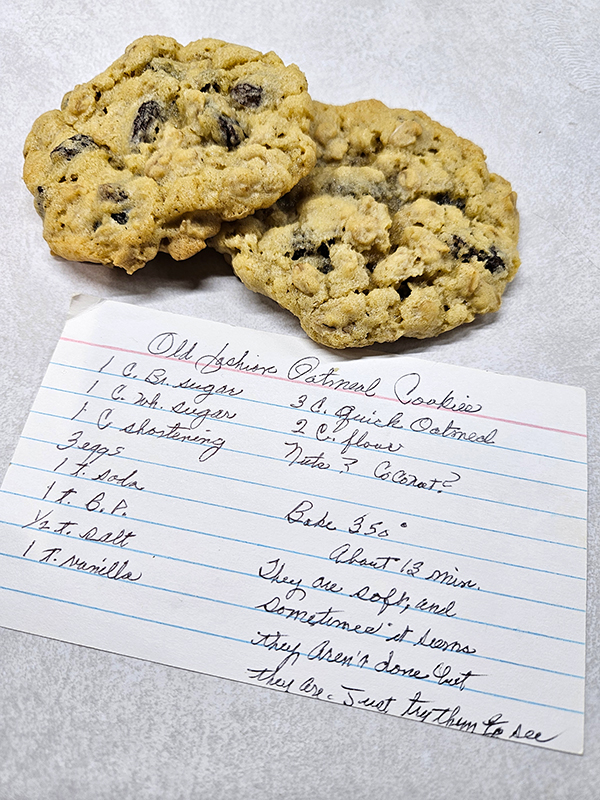 Old Fashion Oatmeal Cookies
1 C. Br. sugar
1 C. Wh. sugar
1 C shortening
3 eggs
1 t. soda
1 t. B.P.
1/2 t. salt
1 t. vanilla
3 C. quick Oatmeal
2 C. flour
Nuts? Coconut?
Bake 350°
About 13 min.
They are soft, and
sometimes it seems
they aren't done but
they are. Just try them to see